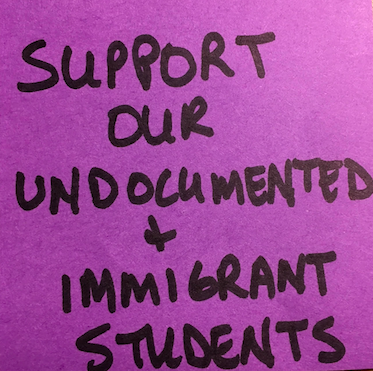 SUPPORT
OUR
UNDOCUMENTED
+
IMMIGRANT
STUDENTS